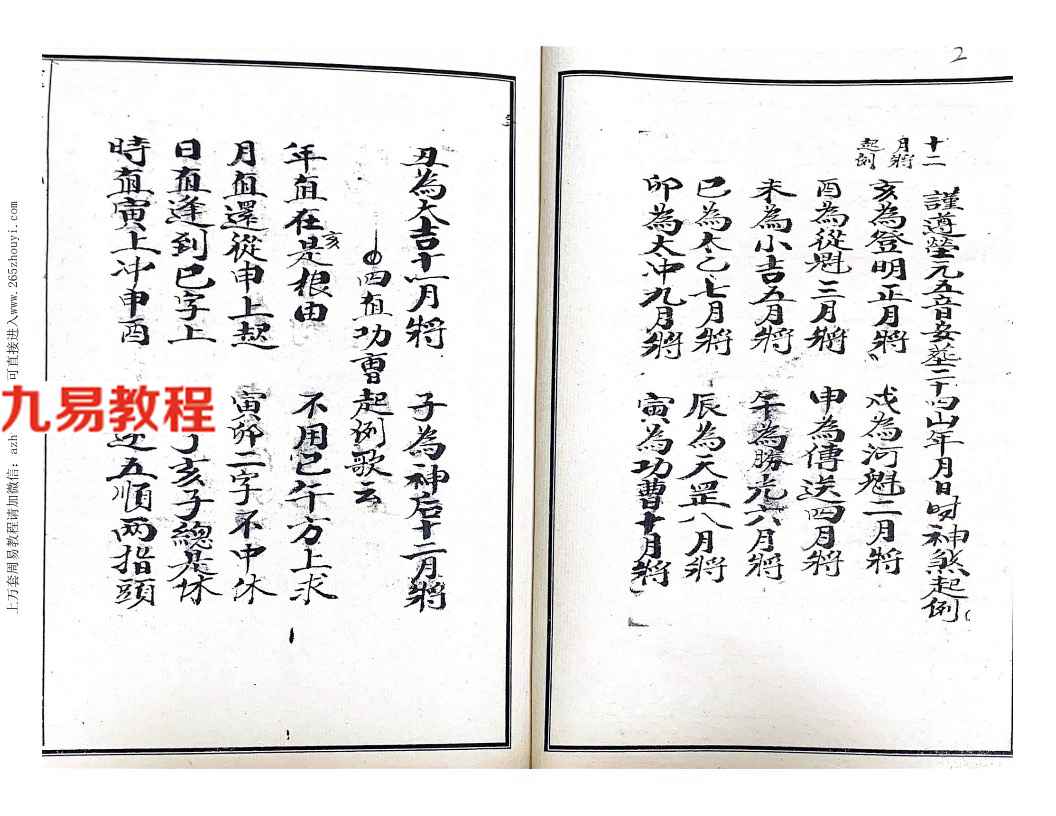 2
謹遵瑩元五音安墓二十四山年月日時神煞起例
十二
月將
起例
亥為登明正月將 戍為河魁二月將
酉為從魁三月將 申為傳送四月將
未為小吉五月將 午為勝光六月將
巳為太乙七月將 辰為天罡八月將
卯為太冲九月將 寅為功曹十月將
丑為大吉十一月將 子為神后十二月將
四直功曹起例歌云
年直在亥是根由 不用巳午方上求
月直還從申上起 寅卯二字不中休
日直逢到巳字上 亥子總是休
時直寅上冲申酉 五順兩指頭
九易教程
上万套周易教程请加微信：azh 可直接进入www.265zhouyi.com